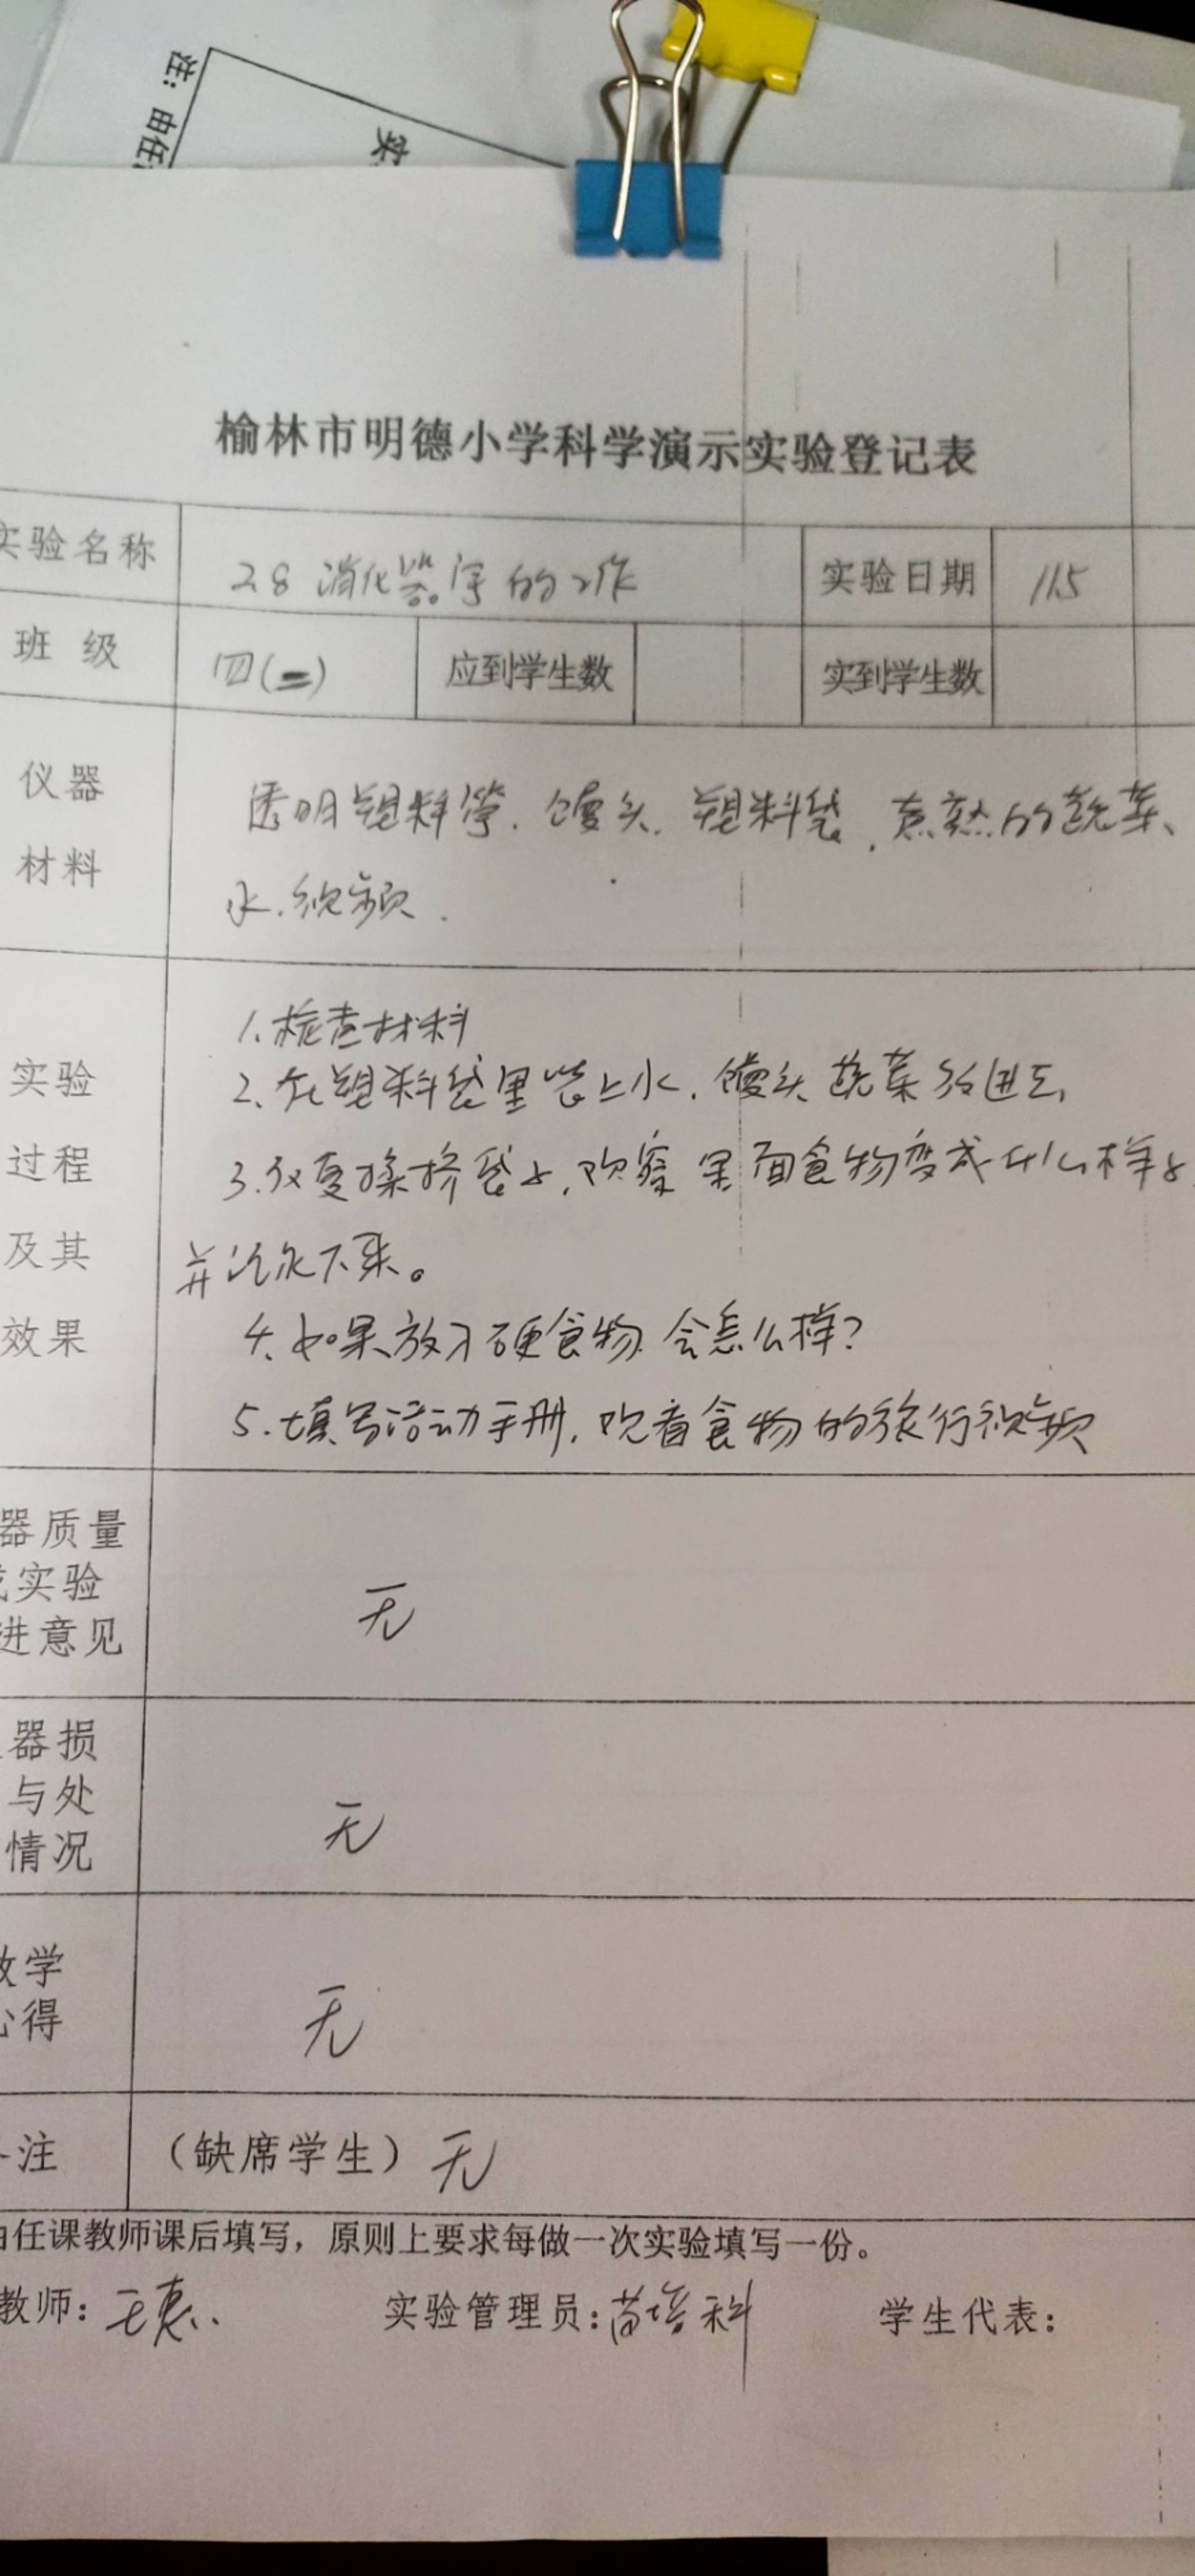 注：由任
实
榆林市明德小学科学演示实验登记表
实验名称 28 消化器官的工作 实验日期 115
班 级 四(二) 应到学生数 实到学生数
仪器
材料
透明塑料管. 馒头. 塑料袋. 煮熟的蔬菜、
水. 视频.
实验
过程
及其
效果
1.检查材料
2.在塑料袋里装上水. 馒头 蔬菜 放进去,
3.反复揉挤袋子, 观察里面食物变成什么样子,
并记录下来。
4.如果放入硬食物 会怎么样?
5.填写活动手册, 观看食物的旅行视频
器质量
或实验
进意见
无
器损
与处
情况
无
教学
心得
无
注 （缺席学生）无
由任课教师课后填写，原则上要求每做一次实验填写一份。
教师: 实验管理员: 苗培科 学生代表: